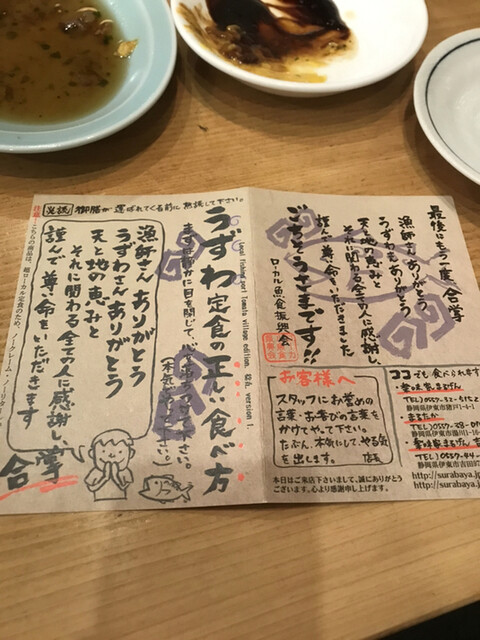 必読 御膳が運ばれてくる前に熟読して下さい。
Local fishing port Tomato village edition. 絵布, version 1.
うずわ定食の正しい食べ方
まず、静かに目を閉じて、心を落ちつけて下さい。
(本気でやって下さい。)
漁師さんありがとう
うずわさんありがとう
天と地の恵みと
それに関わる全ての人に感謝し、
謹んで尊い命をいただきます
合掌
注意!こちらの商品は、超ローカル定食のため、ノークレーム・ノーリターン
最後にもう一度 合掌
漁師さんありがとう
うずわもありがとう
天と地の恵みと
それに関わる全ての人に感謝し、
謹んで尊い命をいただきました
ごちそうさまです!!
ローカル魚食振興会
お客様へ
スタッフにお誉めの
言葉・お喜びの言葉を
かけてやって下さい。
たぶん、本気にして、やる気
を出します。
店長
本日はご来店下さいまして、誠にありがとう
ございます。心より感謝申し上げます。
ココでも食べられます
TEL) 0557-52-
静岡県伊東市
TEL) 0557-38-
静岡県伊東市
TEL) 0557-44-
静岡県伊東市吉田
http://surabaya.jp
http://surabaya.